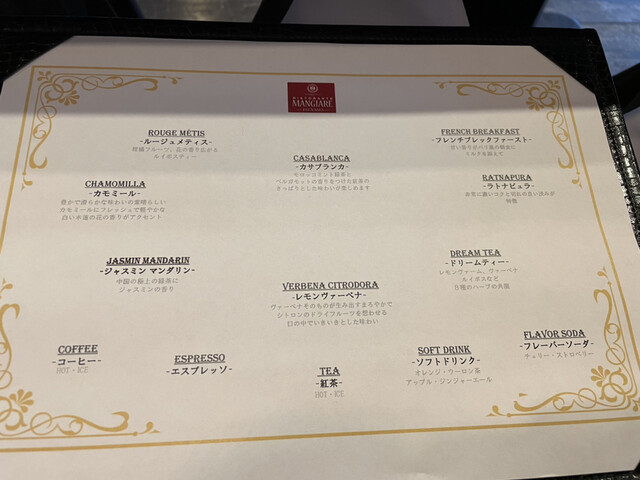 RISTORANTE
MANGIARE
ROUGE MÉTIS
-ルージュメティス-
柑橘フルーツ、花の香り広がる
ルイボスティー
CASABLANCA
-カサブランカ-
モロッコミント緑茶と
ベルガモットの香りをつけた紅茶の
さっぱりとした味わいが楽しめます
FRENCH BREAKFAST
-フレンチブレックファースト-
甘い香りがパリ風の朝食に
ミルクを添えて
CHAMOMILLA
-カモミール-
豊かで滑らかな味わいの素晴らしい
カモミールにフレッシュで軽やかな
白い木蓮の花の香りがアクセント
RATNAPURA
-ラトナピュラ-
非常に濃いコクと切れの良い渋みが
特徴
JASMIN MANDARIN
-ジャスミン マンダリン-
中国の極上の緑茶に
ジャスミンの香り
VERBENA CITRODORA
-レモンヴァーベナ-
ヴァーベナそのものが生み出すまろやかで
シトロンのドライフルーツを思わせる
口の中でいきいきとした味わい
DREAM TEA
-ドリームティー-
レモンヴァーム、ヴァーベナ
ルイボスなど
8種のハーブの共演
COFFEE
-コーヒー-
HOT・ICE
ESPRESSO
-エスプレッソ-
TEA
-紅茶-
HOT・ICE
SOFT DRINK
-ソフトドリンク-
オレンジ・ウーロン茶
アップル・ジンジャーエール
FLAVOR SODA
-フレーバーソーダ-
チェリー・ストロベリー